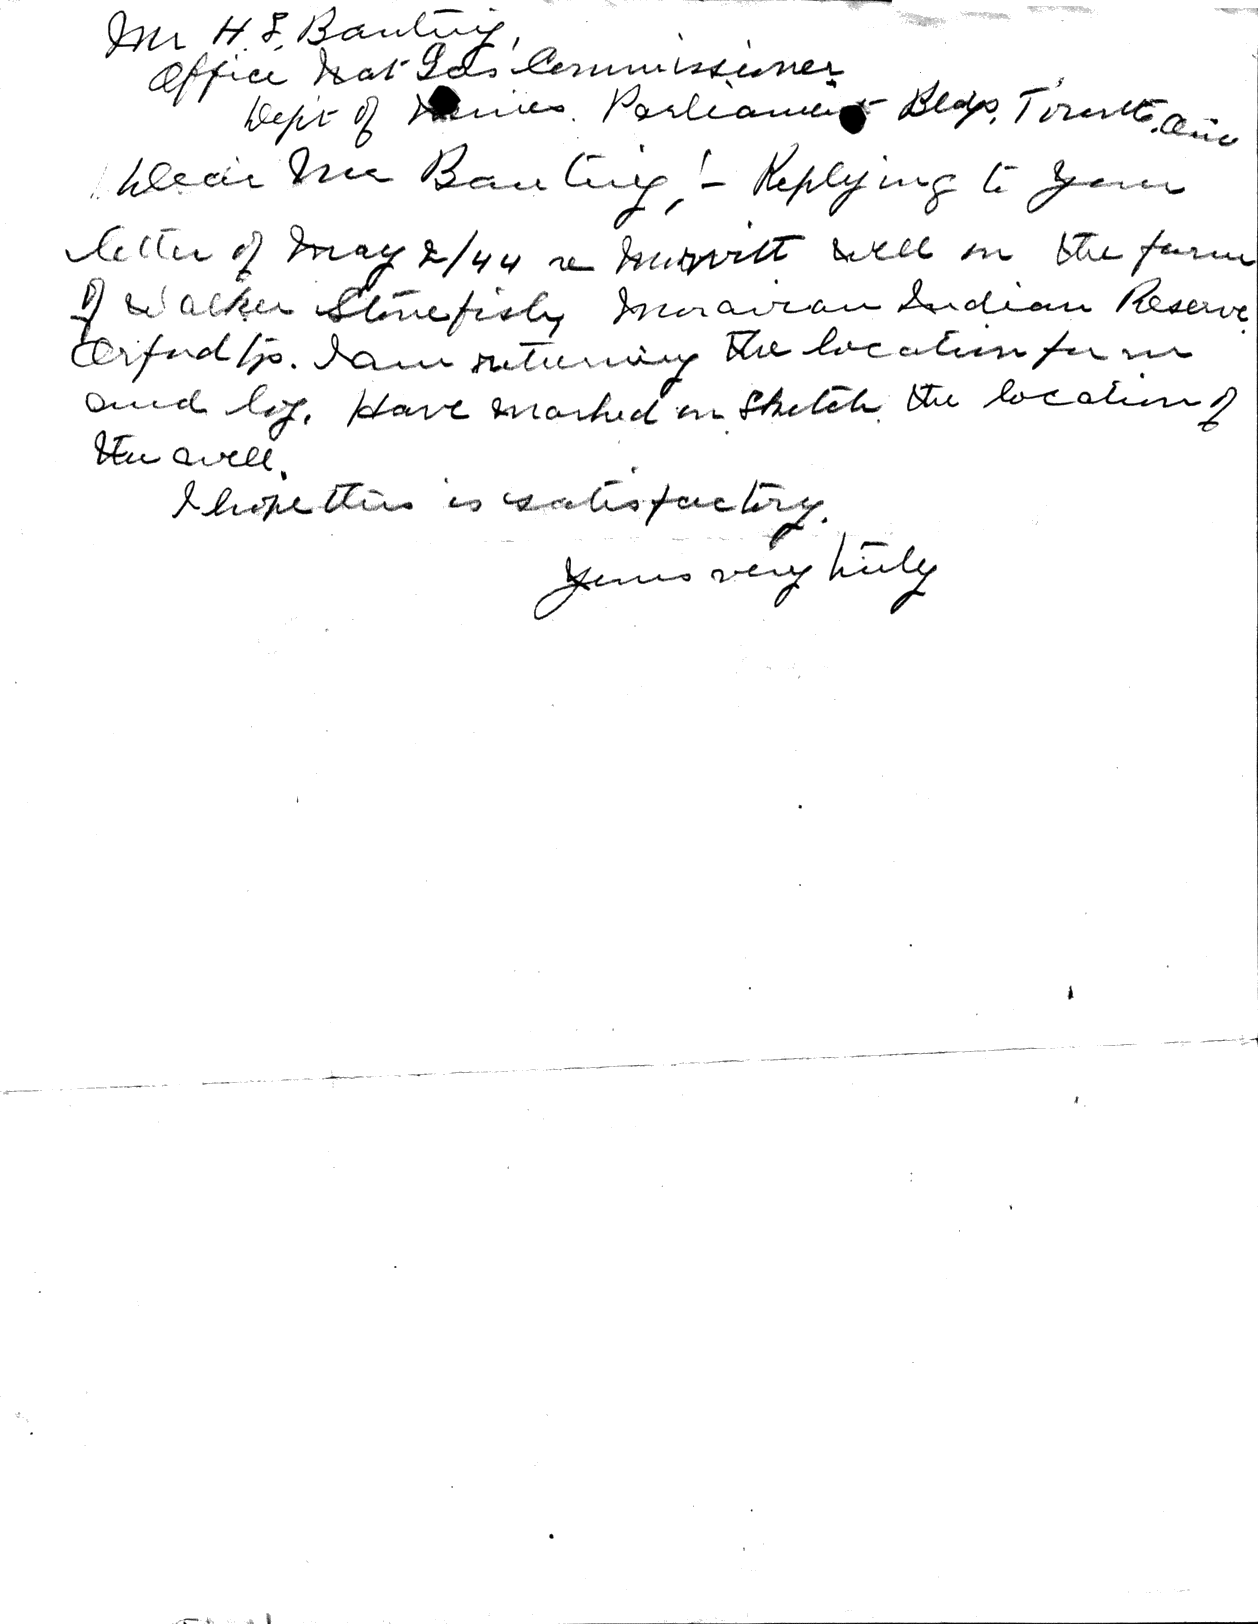 Mr H. S. Banting,
Office Nat Gas Commissioner
Dept of Mines. Parliament Bldgs. Toronto. Ont
Dear Mr Banting, :- Replying to your
letter of May 2/44 re Merritt well on the farm
of Walker Stonefish, Moravian Indian Reserve
Orford tp. I am returning the location form
and log. Have marked on sketch the location of
the well.
I hope this is satisfactory.
Yours very truly